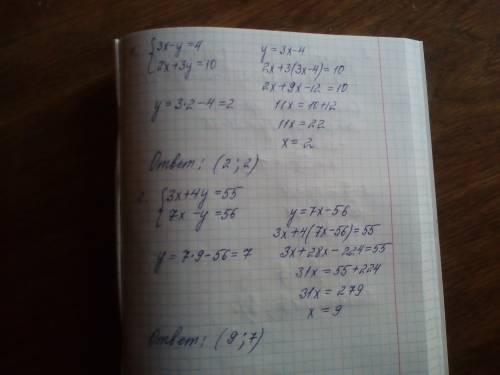 1. {3x-y=4 y=3x-4
{2x+3y=10 2x+3(3x-4)=10
2x+9x-12=10
y=3·2-4=2 11x=10+12
11x=22
x=2
Ответ: (2;2)
2. {3x+4y=55
{7x-y=56 y=7x-56
3x+4(7x-56)=55
y=7·9-56=7 3x+28x-224=55
31x=55+224
31x=279
x=9
Ответ: (9;7)